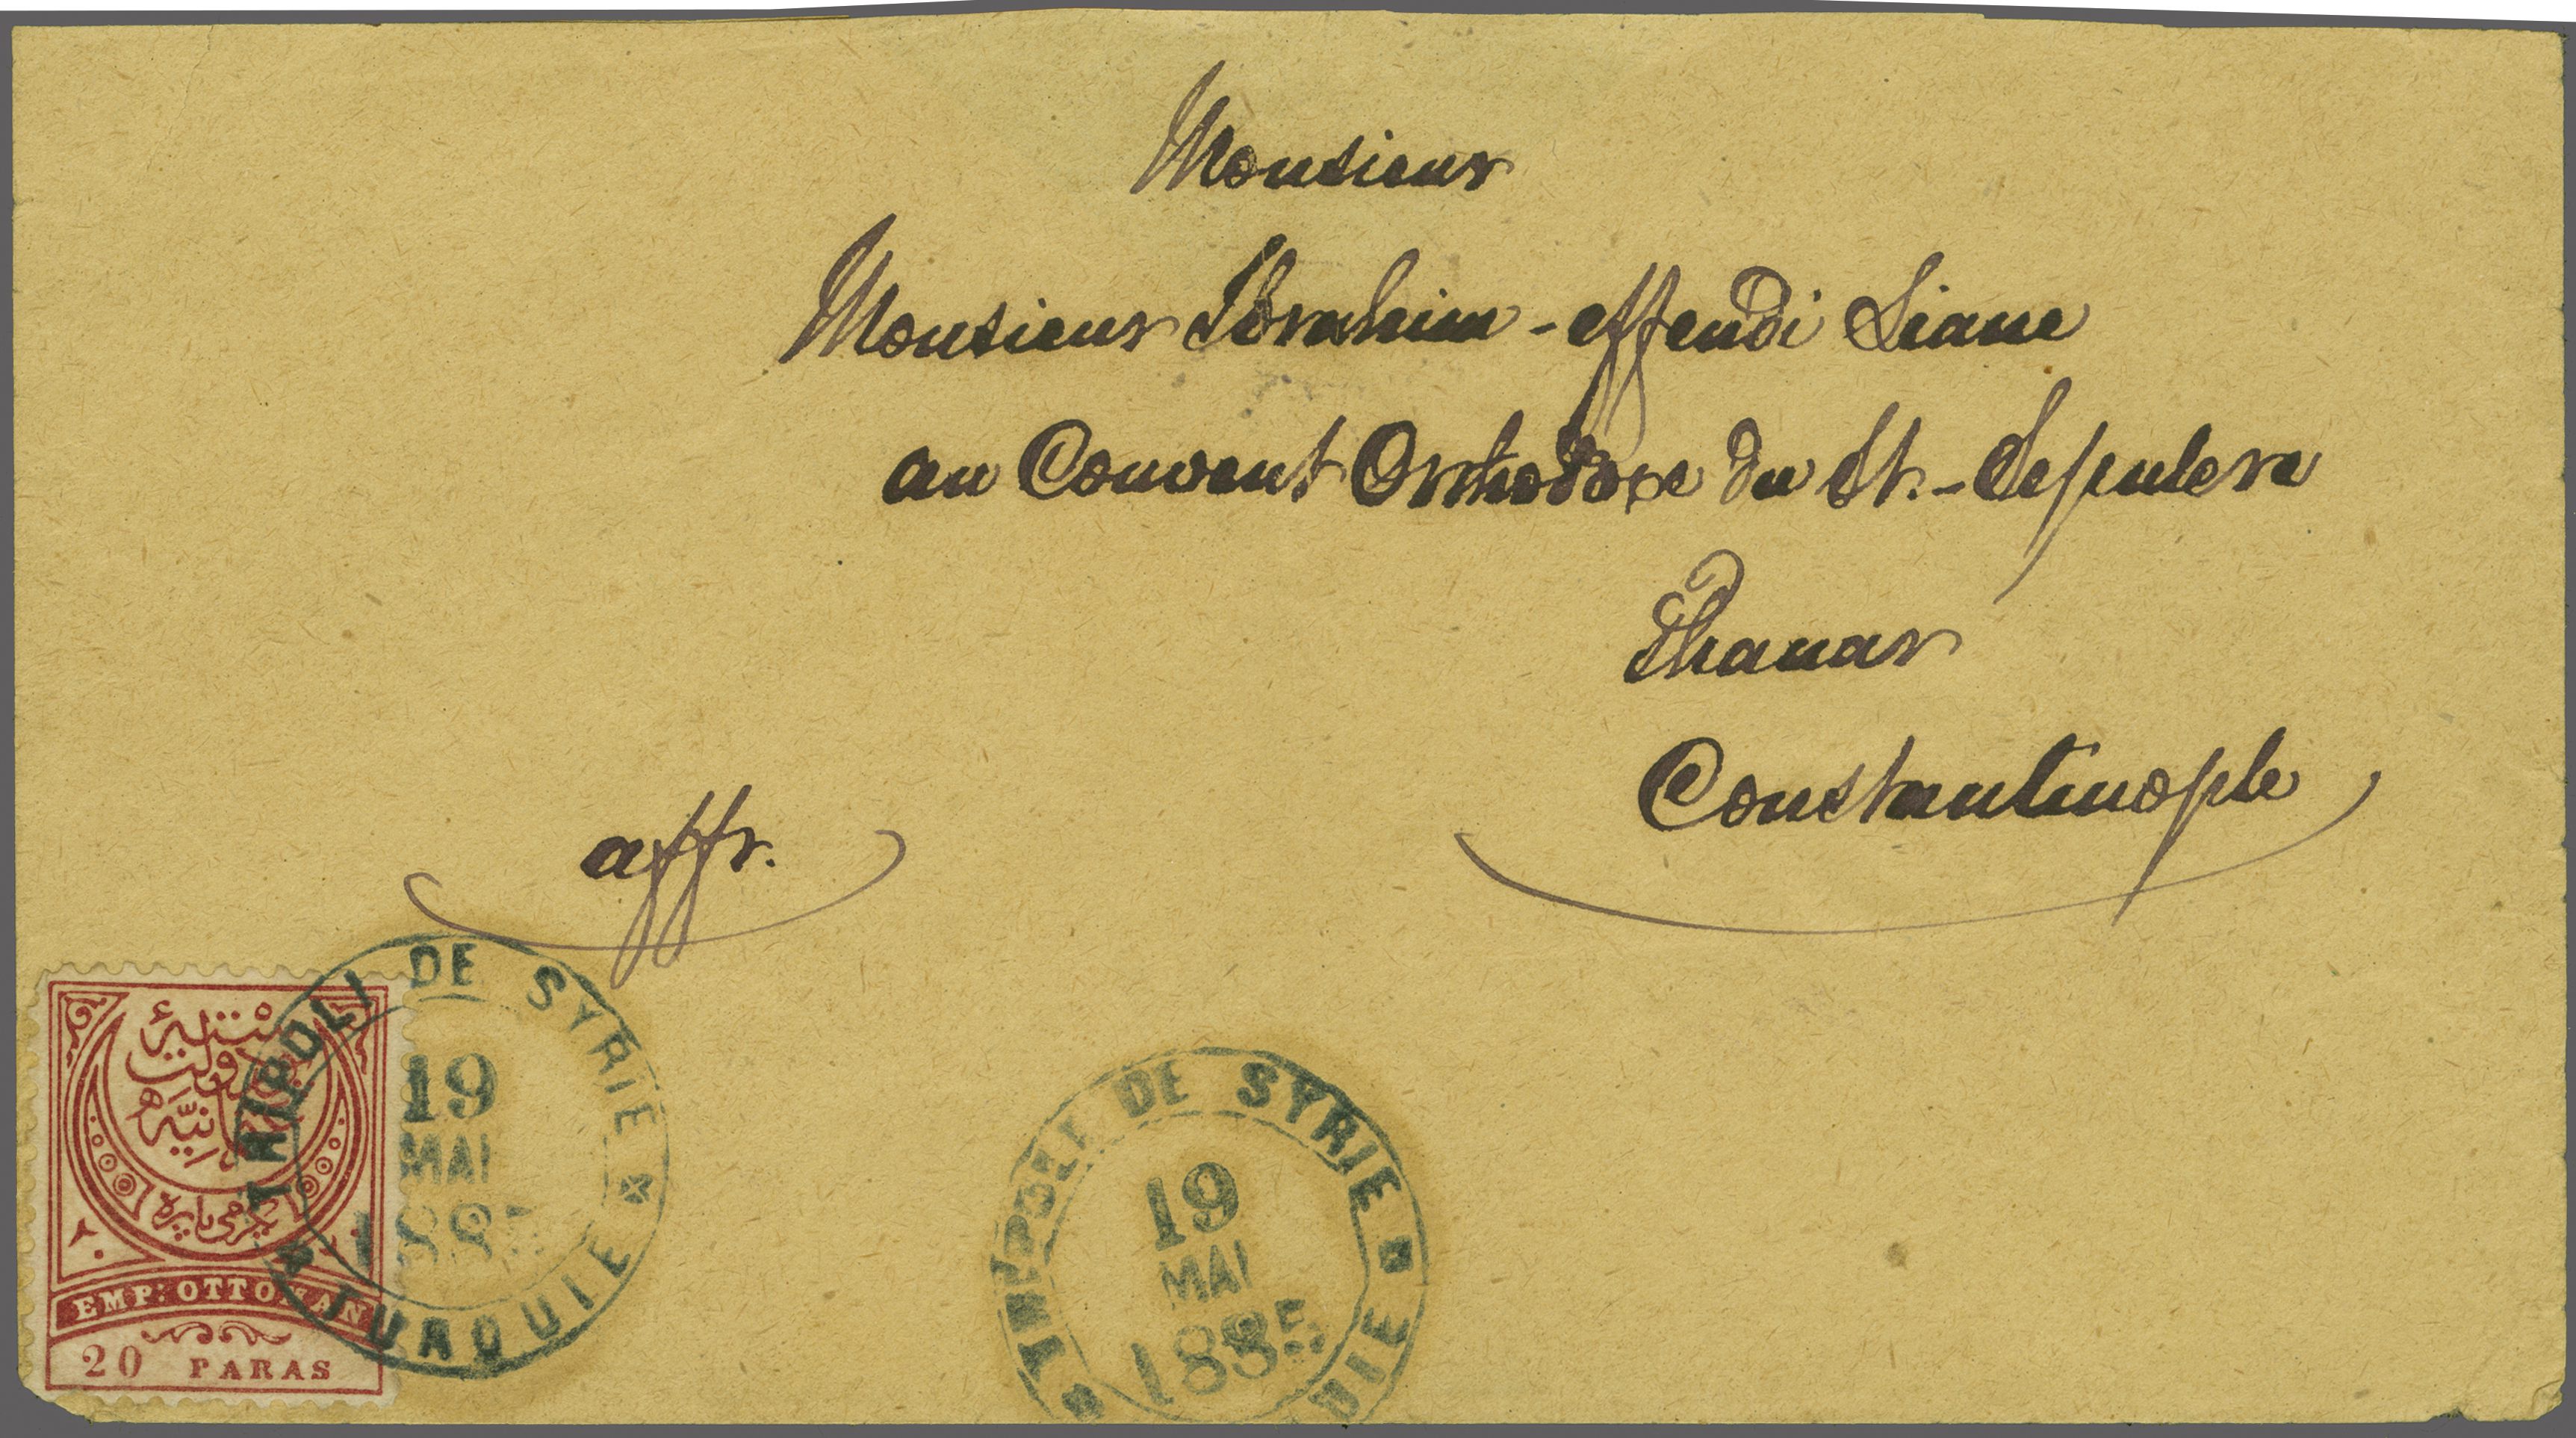 Monsieur
Monsieur Ibrahim-effendi Liane
au Couvent Orthodoxe du St.-Sepulcre
Phanar
Constantinople
affr.
TRIPOLI DE SYRIE
19
MAI
188
TURQUIE
دولت
يكرمى پاره
٢٠
EMP: OTTOMAN
20 PARAS
DE SYRIE
19
MAI
1885